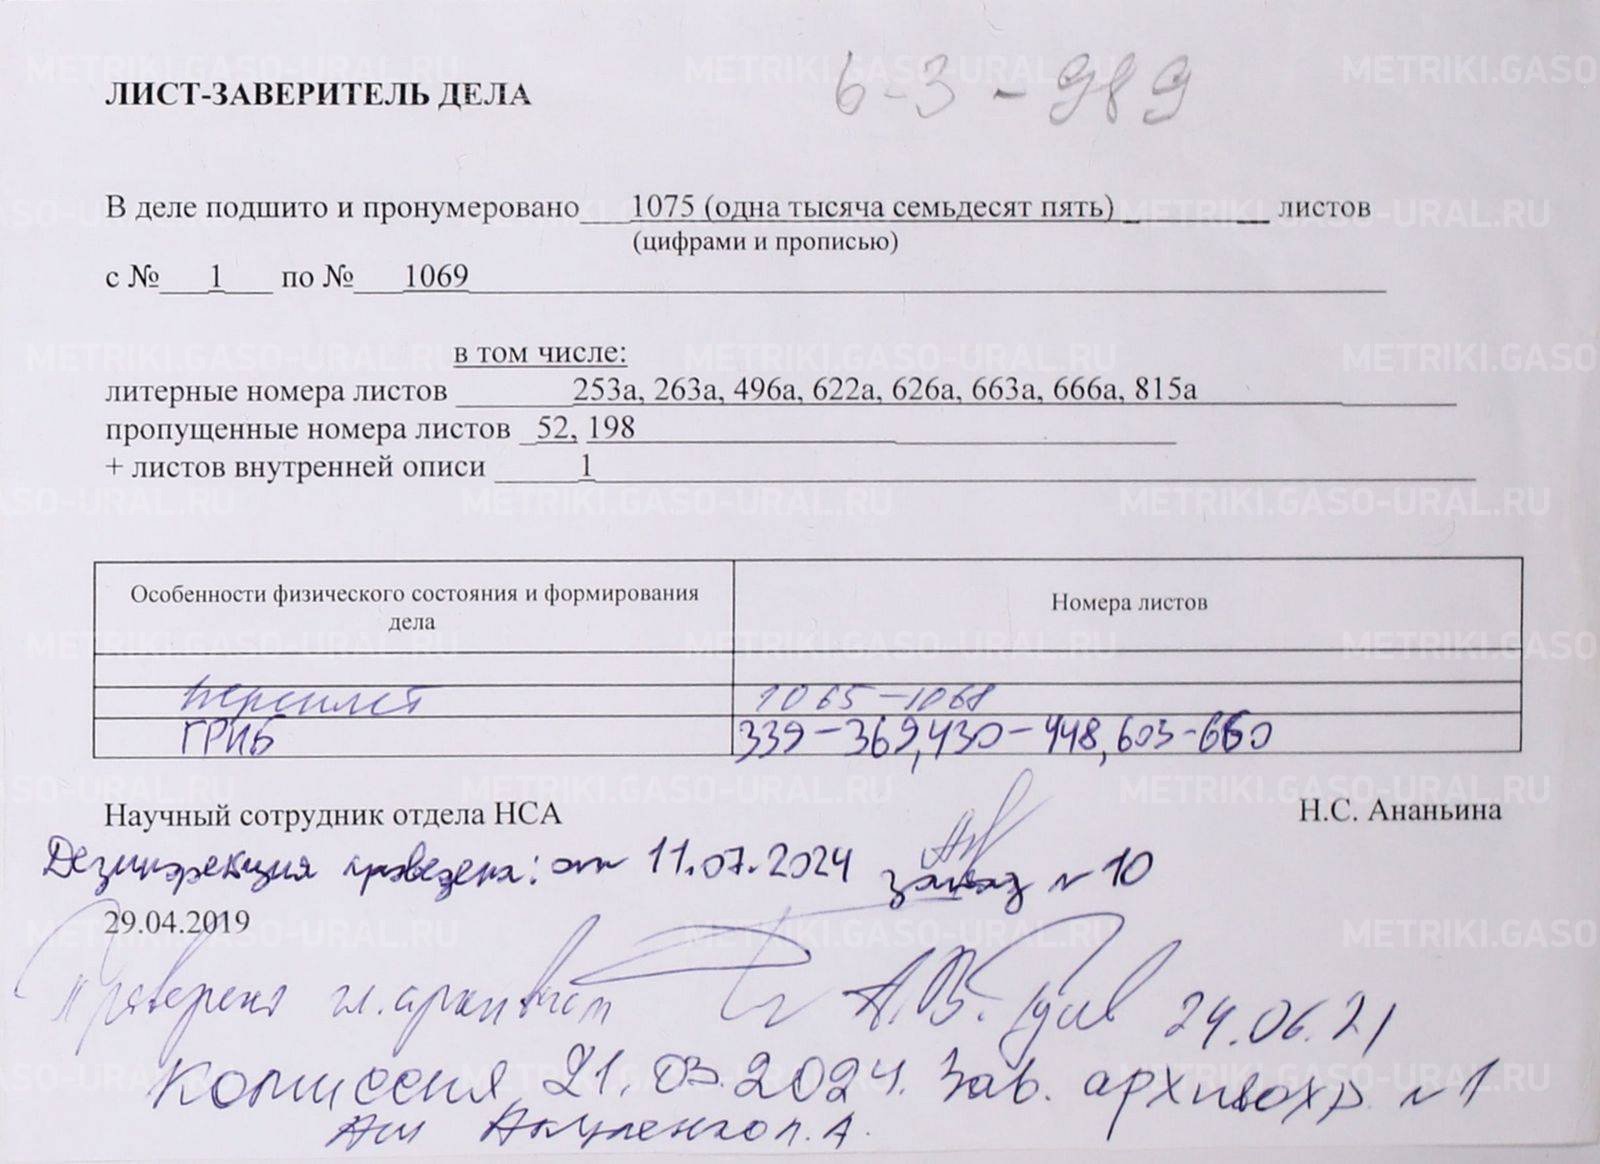 6-3-989
ЛИСТ-ЗАВЕРИТЕЛЬ ДЕЛА
В деле подшито и пронумеровано 1075 (одна тысяча семьдесят пять) листов
(цифрами и прописью)
с № 1 по № 1069
в том числе:
литерные номера листов 253а, 263а, 496а, 622а, 626а, 663а, 666а, 815а
пропущенные номера листов 52, 198
+ листов внутренней описи 1
Особенности физического состояния и формирования дела
Номера листов
переплет 1065-1068
ГРИБ 339-369, 430-448, 603-660
Научный сотрудник отдела НСА Н.С. Ананьина
Дезинфекция проведена: от 11.07.2024 заказ № 10
29.04.2019
Проверено гл. архивист А.В. 24.06.21
Комиссия 21.03.2024. Зав. архивохр. №1
Л.А.
METRIKI.GASO-URAL.RU